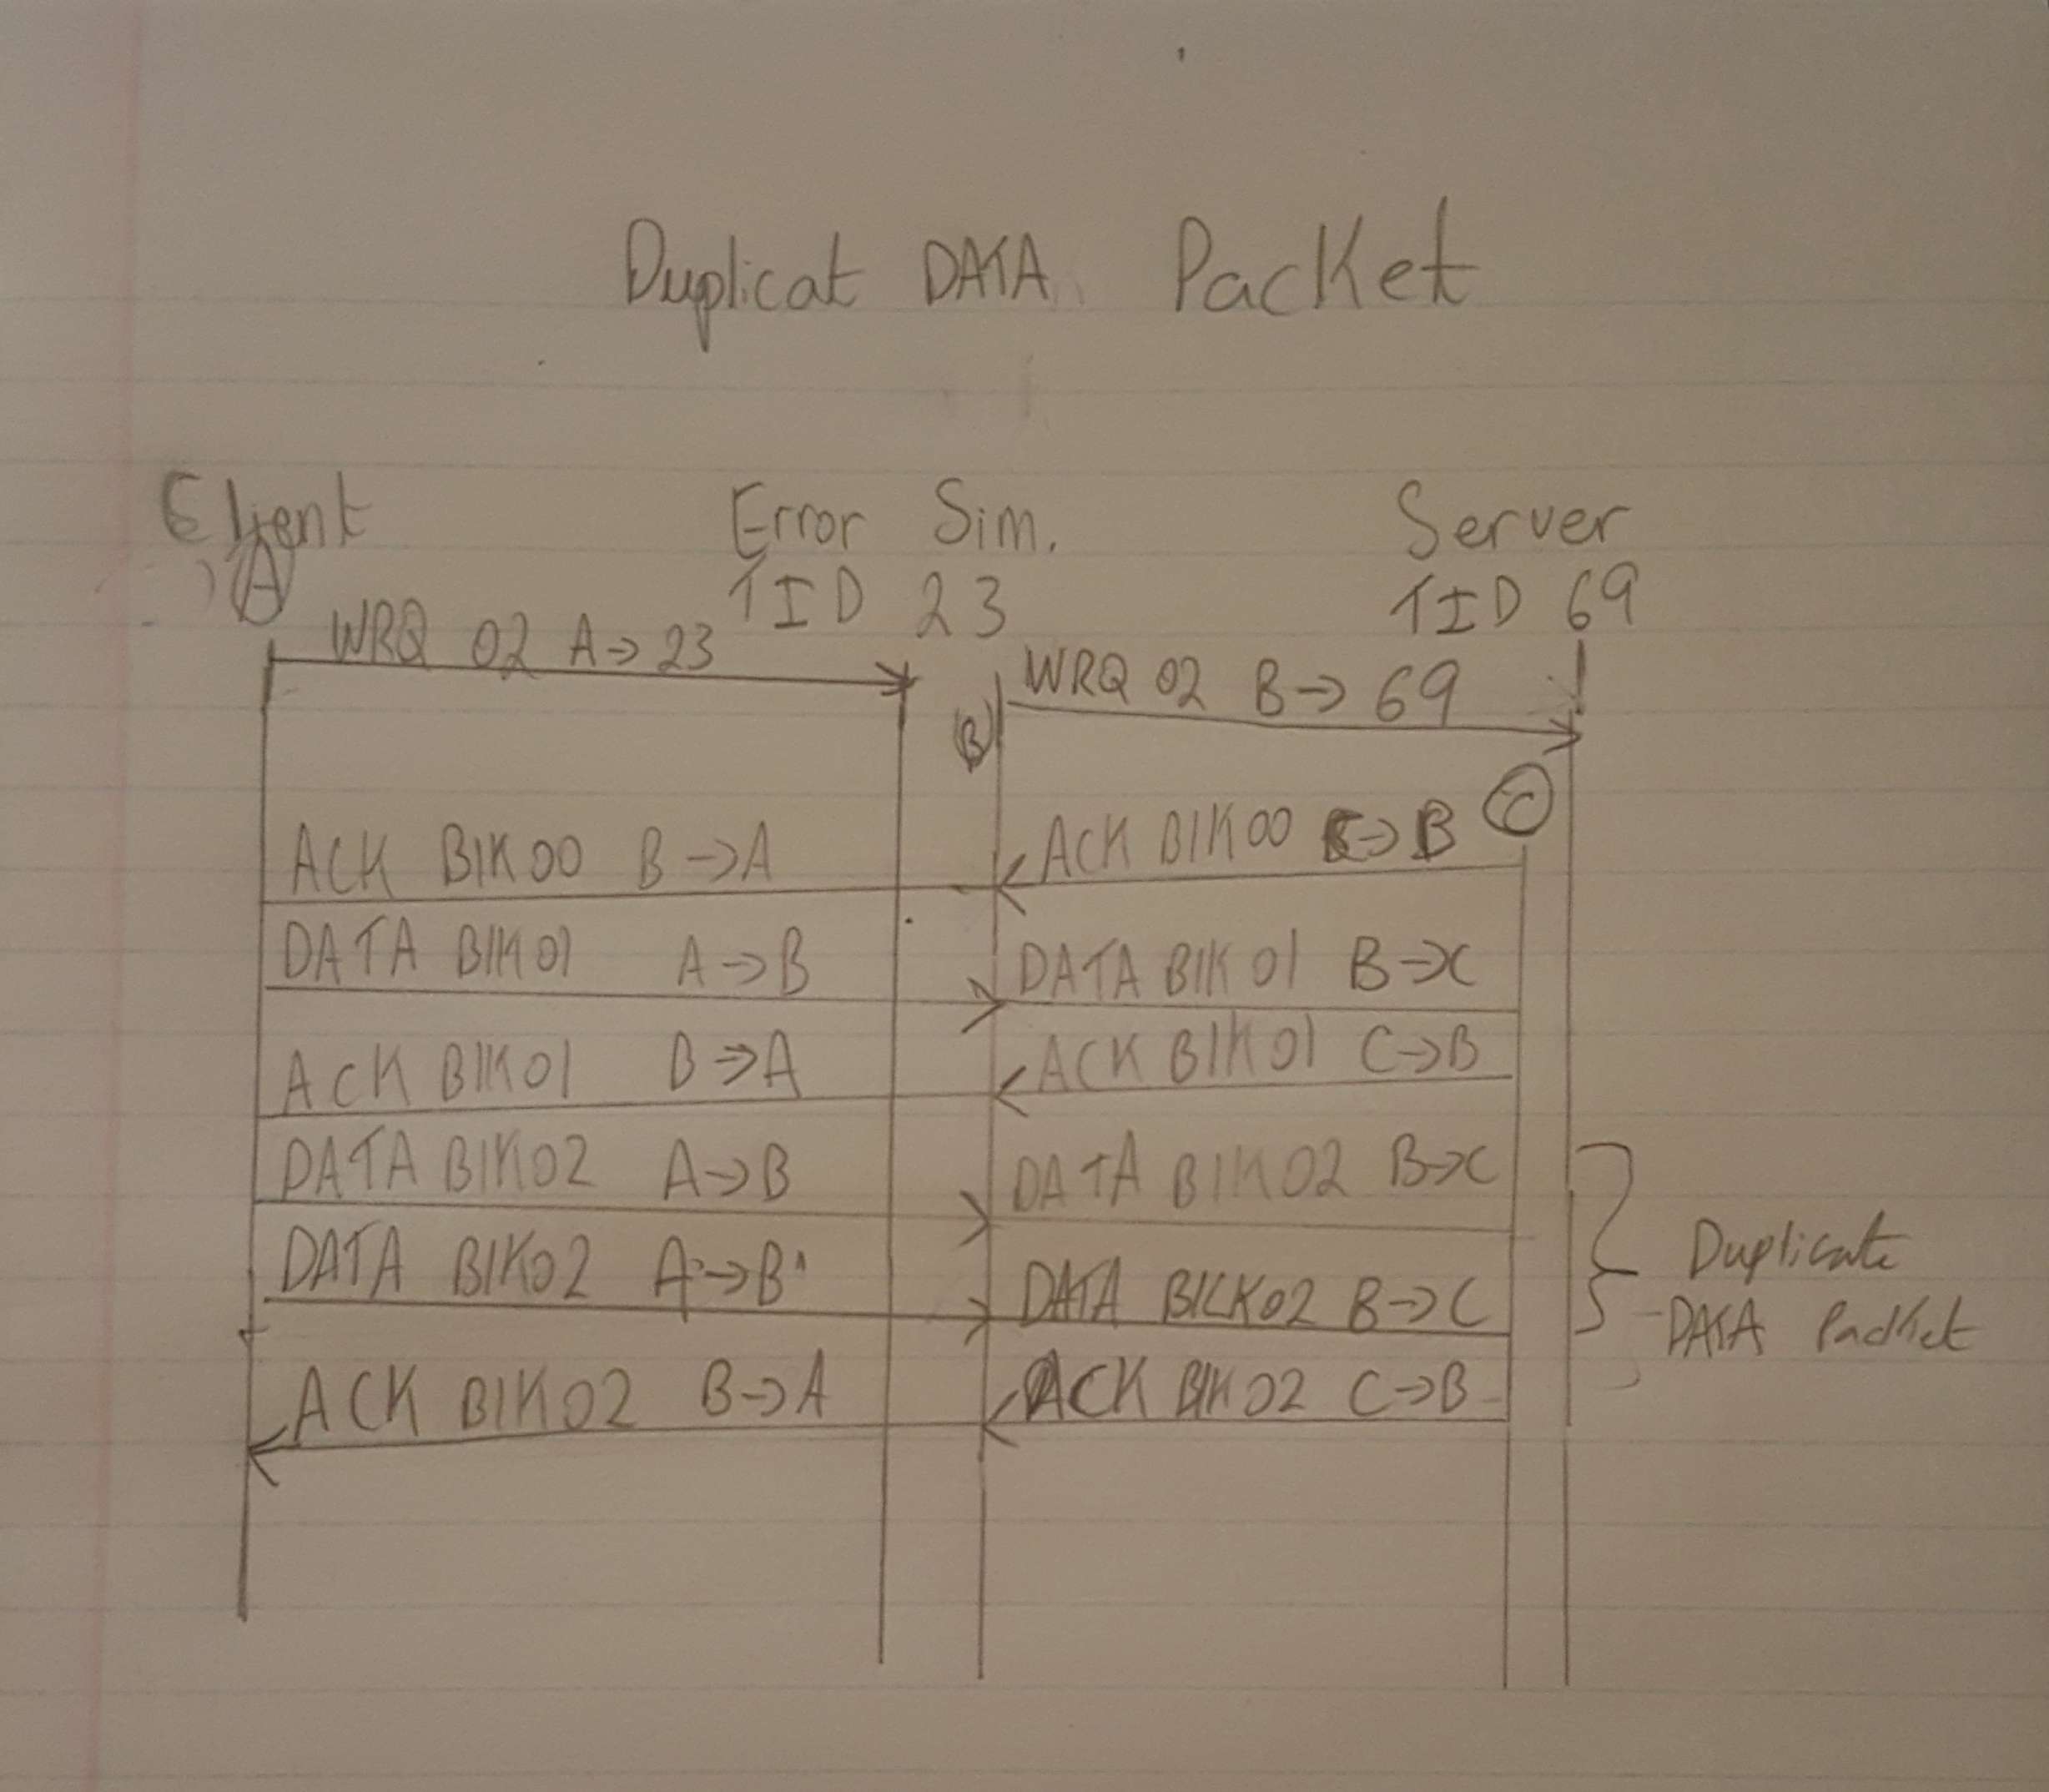 Duplicat DATA Packet
Client Error Sim. Server
A TID 23 TID 69
WRQ 02 A→23 WRQ 02 B→69
B
C
ACK BlK00 B→A ACK BlK00 C→B
DATA BlK01 A→B DATA BlK01 B→C
ACK BlK01 B→A ACK BlK01 C→B
DATA BlK02 A→B DATA BlK02 B→C
DATA BlK02 A→B DATA BlCK02 B→C
Duplicate
DATA Packet
ACK BlK02 B→A ACK BlK02 C→B